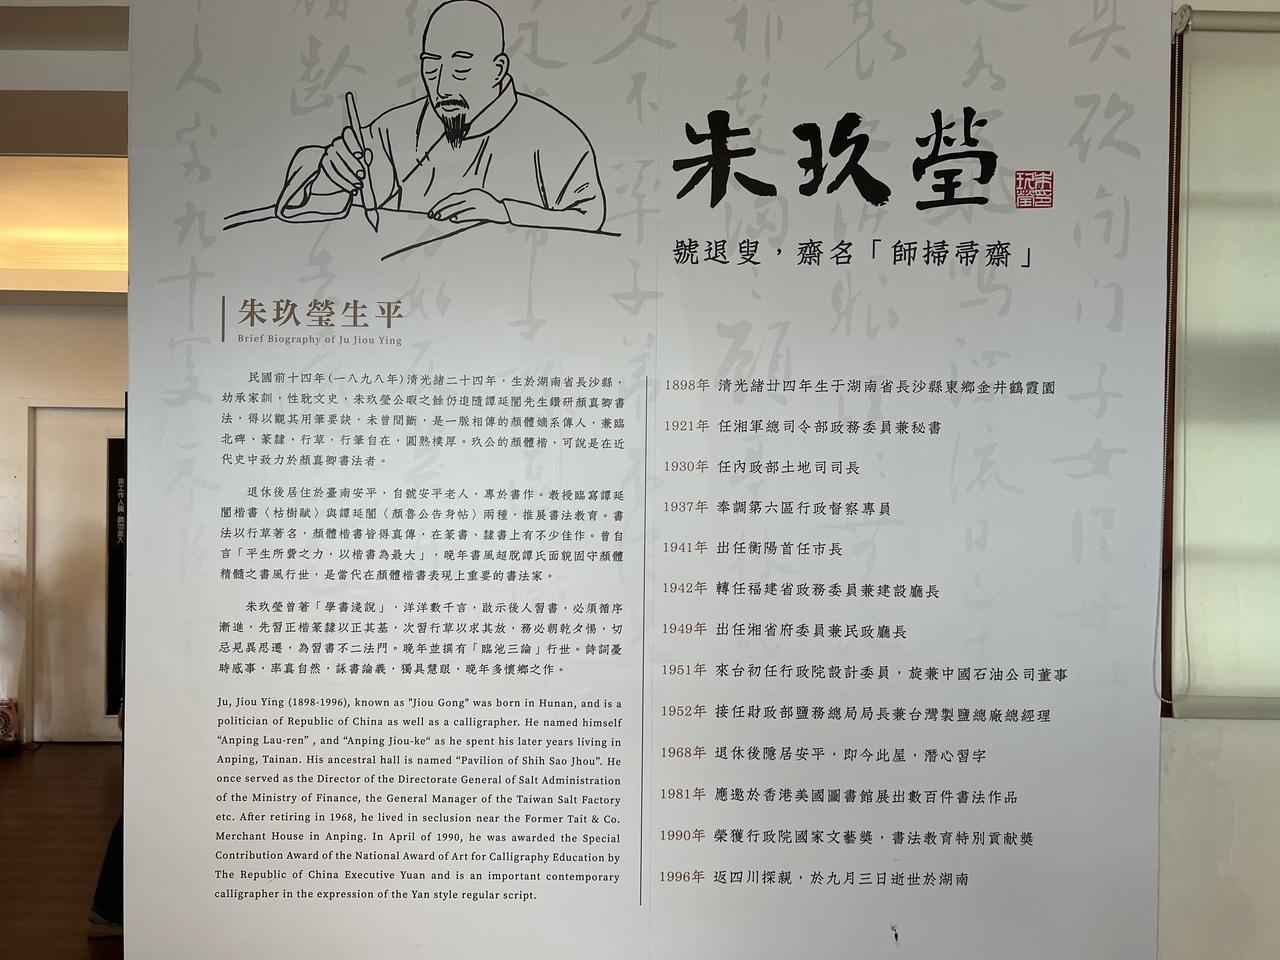 朱玖瑩
朱玖瑩印
號退叟，齋名「師掃帚齋」
朱玖瑩生平
Brief Biography of Ju Jiou Ying
民國前十四年(一八九八年)清光緒二十四年，生於湖南省長沙縣，
幼承家訓，性耽文史，朱玖瑩公暇之餘仍追隨譚延闓先生鑽研顏真卿書
法，得以觀其用筆要訣，未曾間斷，是一脈相傳的顏體嫡系傳人，兼臨
北碑、篆隸、行草，行筆自在，圓熟樸厚。玖公的顏體楷，可說是在近
代史中致力於顏真卿書法者。
退休後居住於臺南安平，自號安平老人，專於書作。教授臨寫譚延
闓楷書〈枯樹賦〉與譚延闓〈顏魯公告身帖〉兩種，推展書法教育。書
法以行草著名，顏體楷書皆得真傳，在篆書、隸書上有不少佳作。曾自
言「平生所費之力，以楷書為最大」，晚年書風超脫譚氏面貌固守顏體
精髓之書風行世，是當代在顏體楷書表現上重要的書法家。
朱玖瑩曾著「學書淺說」，洋洋數千言，啟示後人習書，必須循序
漸進，先習正楷篆隸以正其基，次習行草以求其放，務必朝乾夕惕，切
忌見異思遷，為習書不二法門。晚年並撰有「臨池三論」行世。詩詞憂
時感事，率真自然，詠書論義，獨具慧眼，晚年多懷鄉之作。
Ju, Jiou Ying (1898-1996), known as "Jiou Gong" was born in Hunan, and is a
politician of Republic of China as well as a calligrapher. He named himself
“Anping Lau-ren” , and “Anping Jiou-ke“ as he spent his later years living in
Anping, Tainan. His ancestral hall is named “Pavilion of Shih Sao Jhou”. He
once served as the Director of the Directorate General of Salt Administration
of the Ministry of Finance, the General Manager of the Taiwan Salt Factory
etc. After retiring in 1968, he lived in seclusion near the Former Tait & Co.
Merchant House in Anping. In April of 1990, he was awarded the Special
Contribution Award of the National Award of Art for Calligraphy Education by
The Republic of China Executive Yuan and is an important contemporary
calligrapher in the expression of the Yan style regular script.
1898年 清光緒廿四年生于湖南省長沙縣東鄉金井鶴霞園
1921年 任湘軍總司令部政務委員兼秘書
1930年 任內政部土地司司長
1937年 奉調第六區行政督察專員
1941年 出任衡陽首任市長
1942年 轉任福建省政務委員兼建設廳長
1949年 出任湘省府委員兼民政廳長
1951年 來台初任行政院設計委員，旋兼中國石油公司董事
1952年 接任財政部鹽務總局局長兼台灣製鹽總廠總經理
1968年 退休後隱居安平，即今此屋，潛心習字
1981年 應邀於香港美國圖書館展出數百件書法作品
1990年 榮獲行政院國家文藝獎，書法教育特別貢献獎
1996年 返四川探親，於九月三日逝世於湖南
非工作人員，請勿進入